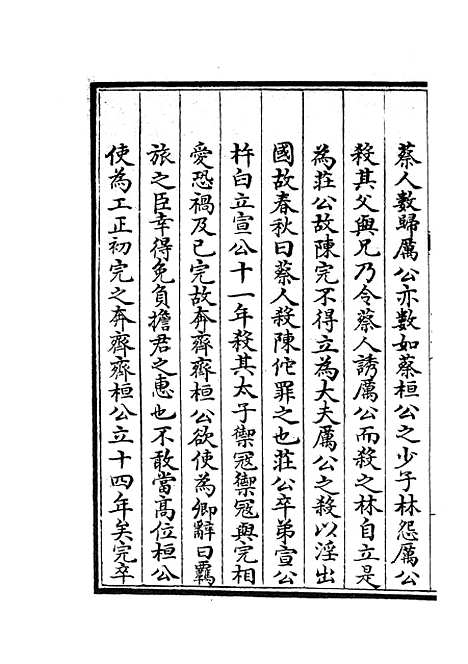 蔡人數歸厲公亦數如蔡桓公之少子林怨厲公
殺其父與兄乃令蔡人誘厲公而殺之林自立是
為莊公故陳完不得立為大夫厲公之殺以淫出
國故春秋曰蔡人殺陳佗罪之也莊公卒弟宣公
杵臼立宣公十一年殺其太子禦冦禦冦與完相
愛恐禍及己完故奔齊齊桓公欲使為卿辭曰羈
旅之臣幸得免負擔君之惠也不敢當髙位桓公
使為工正初完之奔齊齊桓公立十四年矣完卒